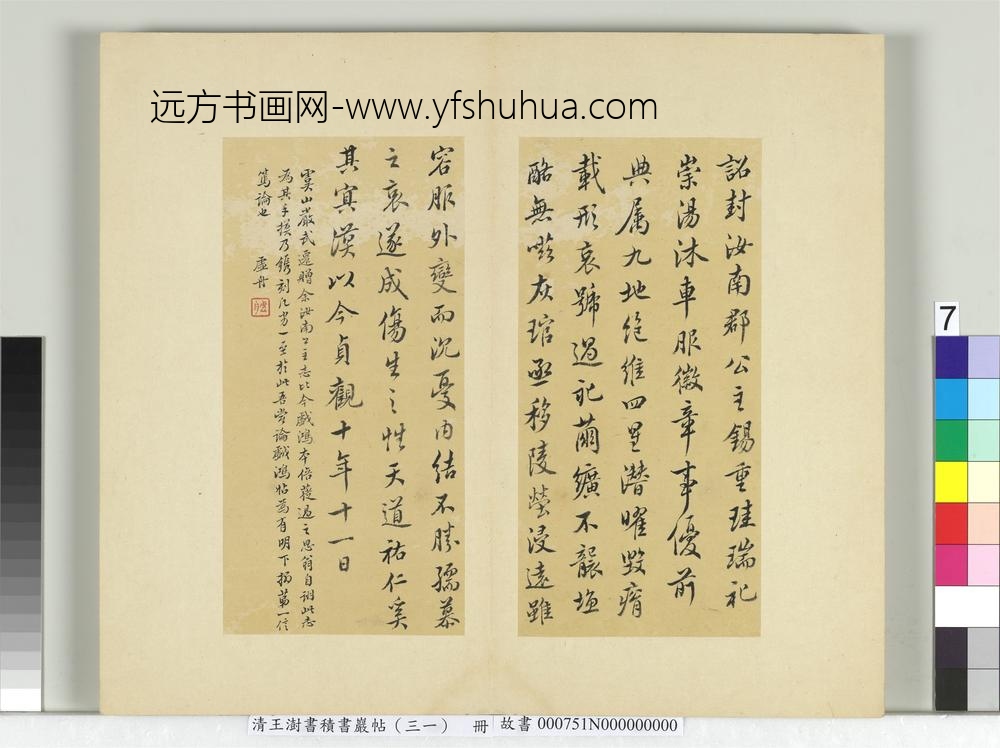 远方书画网-www.yfshuhua.com
詔封汝南郡公主錫重珪瑞祀
崇湯沐車服徽章事優前
典属九地絶維四星潛曜毀瘠
載形哀號過礼繭纊不襲塩
酪無嗞灰琯亟移陵塋浸遠雖
容服外變而沉憂内結不勝孺慕
之哀遂成傷生之性天道祐仁奚
其寞漠以今貞觀十年十一日
虞山嚴武遷贈余汝南公主志比今戯鴻本倍蓰過之思翁自謂此志
為其手摸乃鐫刻凡当一至於此吾嘗論戯鴻帖為有明下搨第一信
篤論也 虛舟
7
清王澍書積書巖帖（三一） 冊 故書 000751N000000000